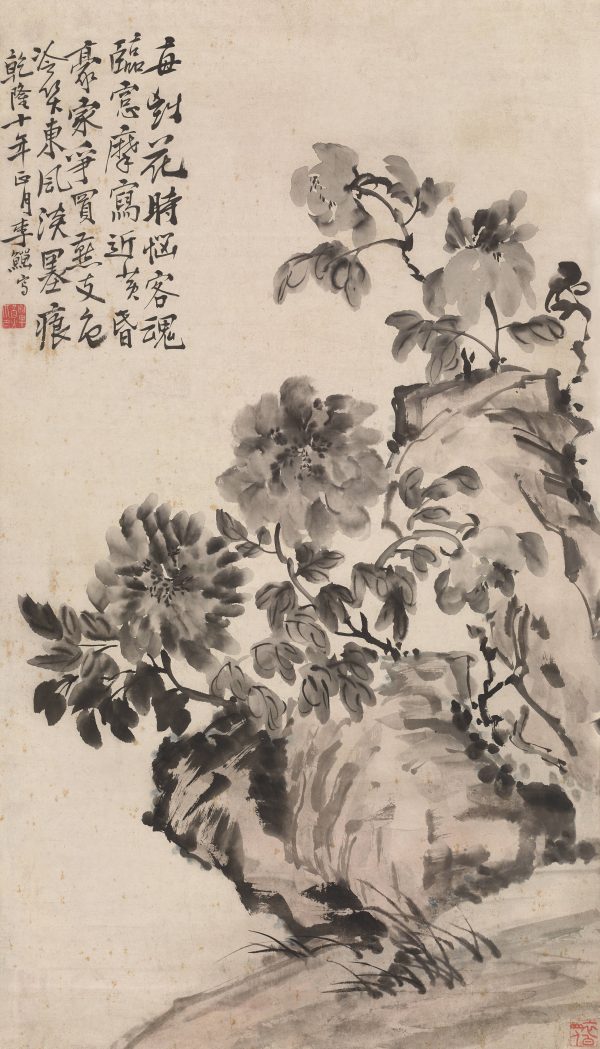 每對花時惱客魂
臨窓摩寫近黃昏
豪家爭買燕支色
冷笑東風淡墨痕
乾隆十年正月李鱓寫